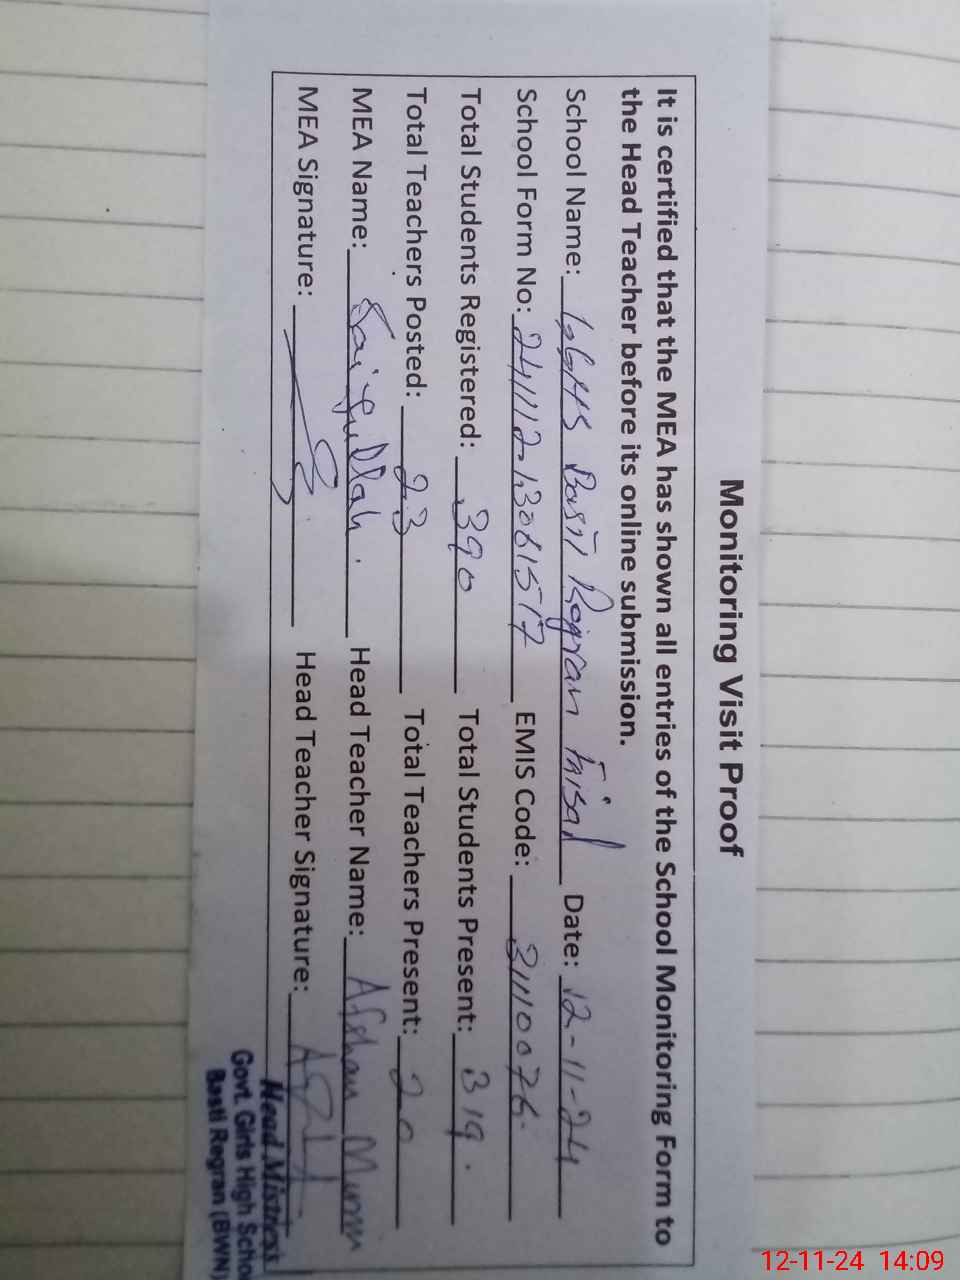 Monitoring Visit Proof
It is certified that the MEA has shown all entries of the School Monitoring Form to
the Head Teacher before its online submission.
School Name: GGHS Basti Regran Faisal Date: 12-11-24
School Form No: EMIS Code: 31110076
Total Students Registered: 390 Total Students Present: 319.
Total Teachers Posted: 23 Total Teachers Present: 20
MEA Name: Saifullah. Head Teacher Name: Afshan
MEA Signature: Head Teacher Signature:
Head Mistress
Govt. Girls High Scho
Basti Regran (BWN)
12-11-24 14:09